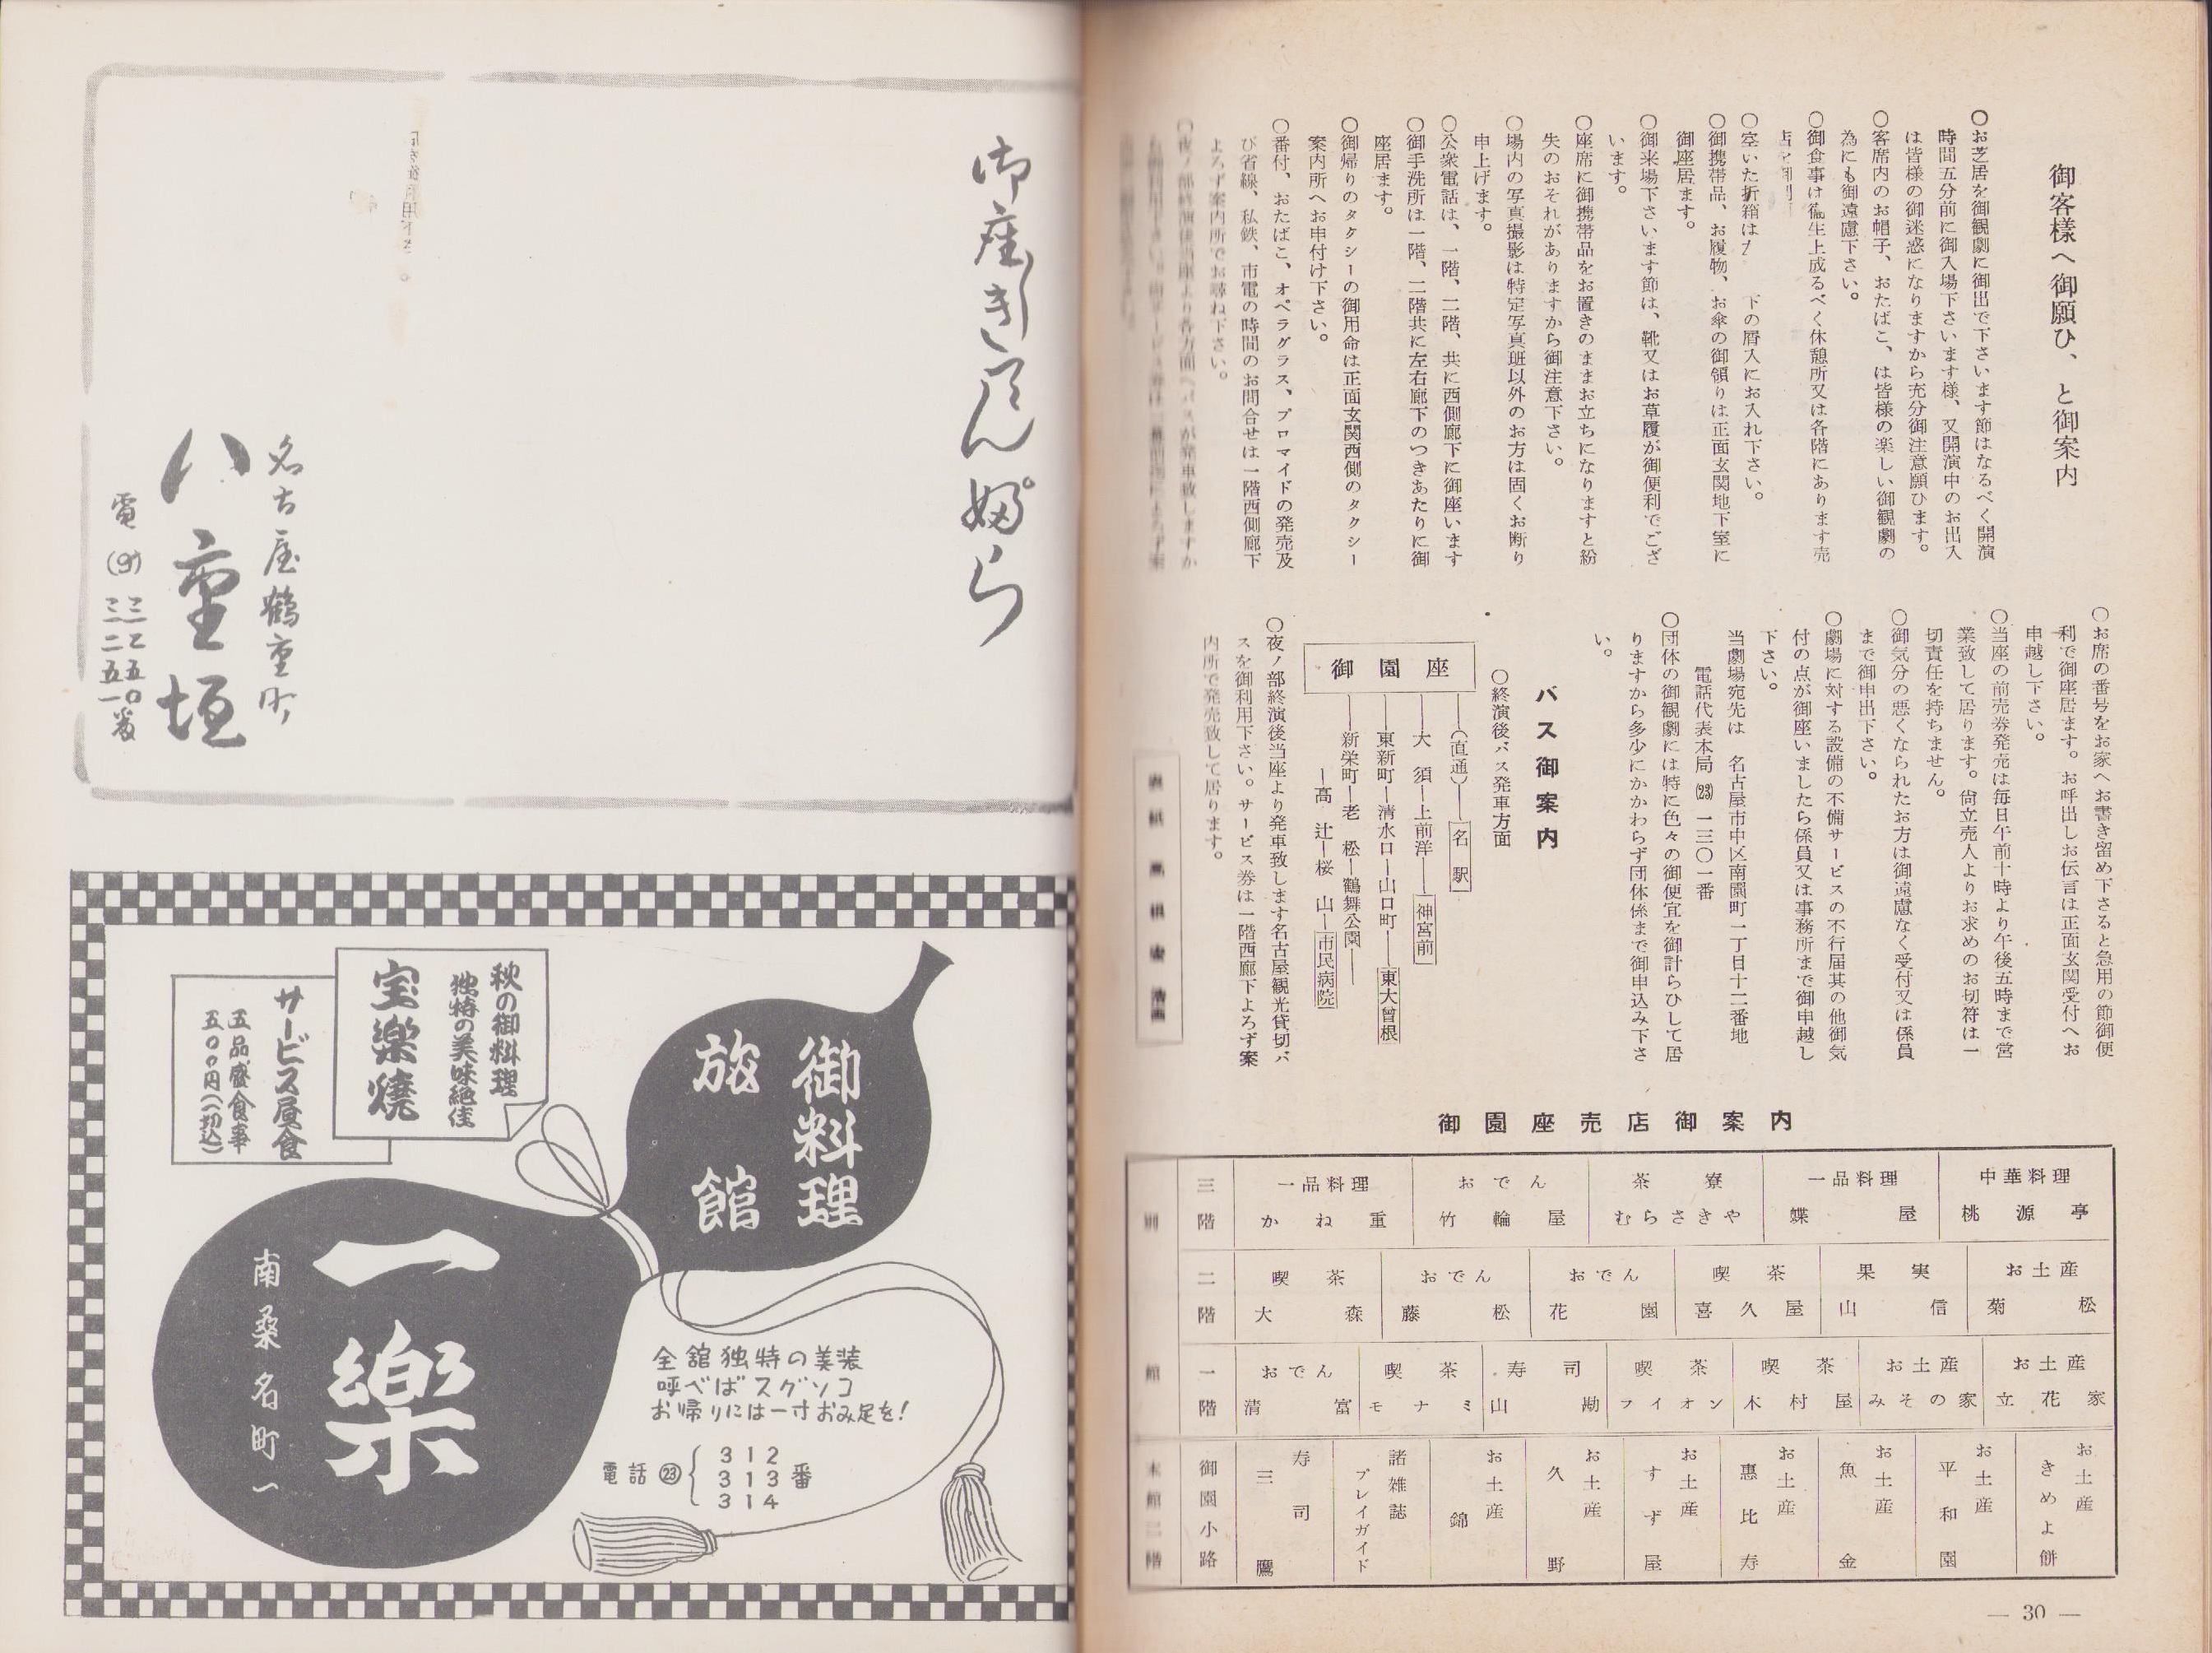 御客樣へ御願ひ、と御案内
〇お芝居を御観劇に御出で下さいます節はなるべく開演
時間五分前に御入場下さいます様、又開演中のお出入
は皆様の御迷惑になりますから充分御注意願ひます。
〇客席内のお帽子、おたばこ、は皆様の楽しい御観劇の
為にも御遠慮下さい。
〇御食事は衛生上成るべく休憩所又は各階にあります売
〇空いた折箱は
下の屑入にお入れ下さい。
〇御携帯品、お履物、お傘の御預りは正面玄関地下室に
御座居ます。
〇御来場下さいます節は、靴又はお草履が御便利でござ
います。
〇座席に御携帯品をお置きのままお立ちになりますと紛
失のおそれがありますから御注意下さい。
〇場内の写真撮影は特定写真班以外のお方は固くお断り
申上げます。
〇公衆電話は、一階、二階、共に西側廊下に御座います
〇御手洗所は一階、二階共に左右廊下のつきあたりに御
座居ます。
〇御帰りのタクシーの御用命は正面玄関西側のタクシー
案内所へお申付け下さい。
〇番付、おたばこ、オペラグラス、ブロマイドの発売及
び省線、私鉄、市電の時間のお問合せは一階西側廊下
よろず案内所でお尋ね下さい。
〇お席の番号をお家へお書き留め下さると急用の節御便
利で御座居ます。お呼出しお伝言は正面玄関受付へお
申越し下さい。
〇当座の前売券発売は毎日午前十時より午後五時まで営
業致して居ります。尙立売人よりお求めのお切符は一
切責任を持ちません。
〇御気分の悪くなられたお方は御遠慮なく受付又は係員
まで御申出下さい。
〇劇場に対する設備の不備サービスの不行届其の他御気
付の点が御座いましたら係員又は事務所まで御申越し
下さい。
当劇場宛先は 名古屋市中区南園町一丁目十二番地
電話代表本局㉓一三〇一番
〇団体の御観劇には特に色々の御便宜を御計らひして居
りますから多少にかかわらず団体係まで御申込み下さ
い。
バス御案内
〇終演後バス発車方面
御園座
(直通)―名駅
大須―上前洋―神宮前
東新町―清水口―山口町―東大曾根
新栄町―老松―鶴舞公園―
―高辻―桜山―市民病院
〇夜ノ部終演後当座より発車致します名古屋観光貸切バ
スを御利用下さい。サービス券は一階西廊下よろず案
内所で発売致して居ります。
御園座売店御案内
三階
一品料理 かね重
おでん 竹輪屋
茶寮 むらさきや
一品料理 蝶屋
中華料理 桃源亭
二階
喫茶 大森
おでん 藤松
おでん 花園
喫茶 喜久屋
果実 山信
お土産 菊松
一階
おでん 清富
喫茶 モナミ
寿司 山勘
喫茶 フイオン
喫茶 木村屋
お土産 みその家
お土産 立花家
御園小路
寿司 三鷹
諸雑誌 プレイガイド
お土産 錦
お土産 久野
お土産 すず屋
お土産 惠比寿
お土産 魚金
お土産 平和園
お土産 きめよ餅
― 30 ―
御座きげん婦゜ら
名古屋鶴重町
八重垣
電(9)三三五〇番
三二五一番
秋の御料理
独特の美味絶佳
宝樂燒
サービス昼食
五品盛食事
五〇〇円(一切込)
御料理
旅館
一樂
南桑名町一
全舘独特の美装
呼べばスグソコ
お帰りには一寸おみ足を!
電話㉓ 312
313番
314